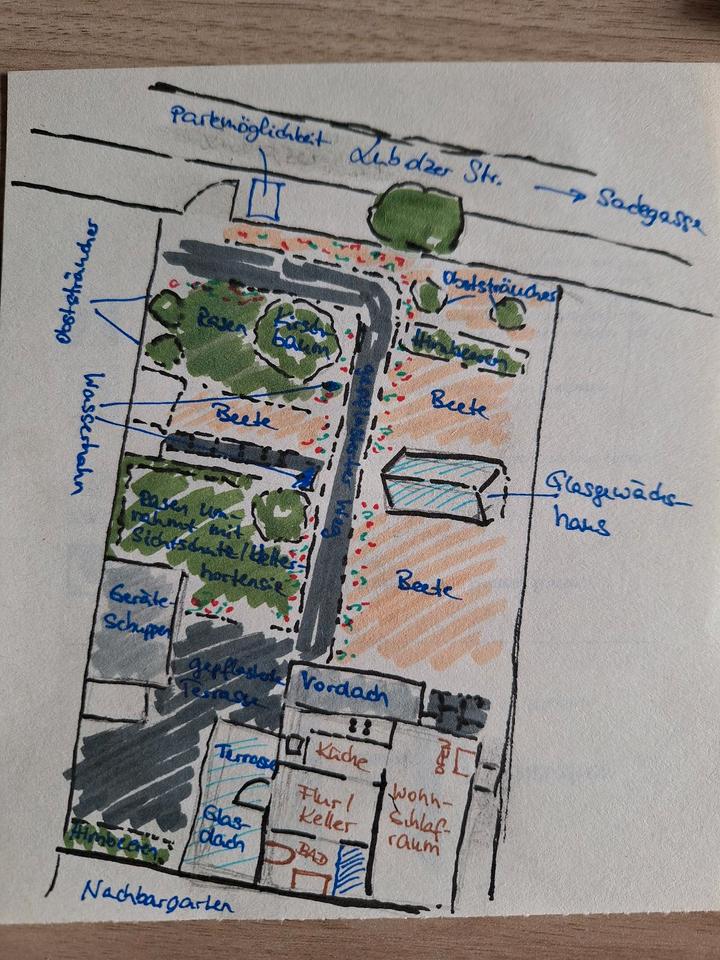 Parkmöglichkeit
Lubolzer Str.
Sadegasse
Obststräucher
Obststräucher
Rasen
Kirsch-
baum
Himbeeren
Wasserhahn
Beete
Beete
gepflasterter Weg
Glasgewächs-
haus
Rasen um-
rahmt mit
Sichtschutz/Kletter-
hortensie
Beete
Geräte-
Schuppen
gepflasterte
Terrasse
Vordach
Terrasse
Küche
Glas-
dach
Flur/
Keller
Wohn-
Schlaf-
raum
BAD
Himbeeren
Nachbargarten